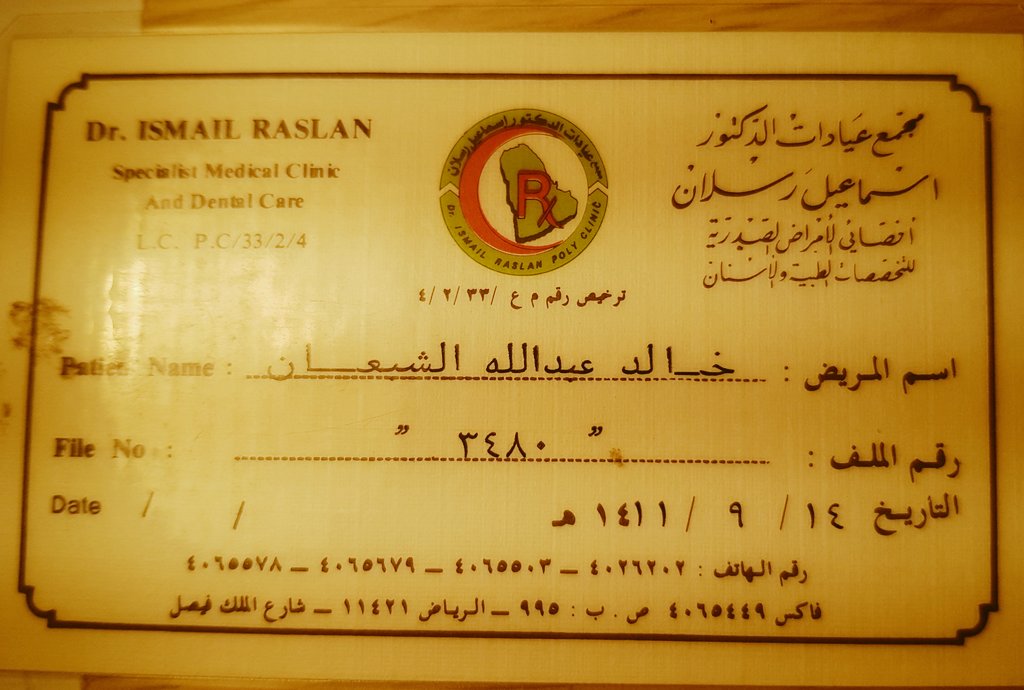 Dr. ISMAIL RASLAN
Specialist Medical Clinic
And Dental Care
L.C. P.C/33/2/4
مجمع عيادات الدكتور اسماعيل رسلان
Rx
Dr. ISMAIL RASLAN POLY CLINIC
ترخيص رقم م ع /٤/٢/٣٣
مجمع عيادات الدكتور
اسماعيل رسلان
أخصائي الأمراض الصدرية
للتخصصات الطبية والأسنان
Patient Name : خالد عبدالله الشبعان اسم المريض :
File No : " ٣٤٨٠ " رقم الملف :
Date / / التاريخ ١٤ / ٩ / ١٤١١ هـ
رقم الهاتف : ٤٠٢٦٢٠٢ – ٤٠٦٥٥٠٣ – ٤٠٦٥٦٧٩ – ٤٠٦٥٥٧٨
فاكس ٤٠٦٥٤٤٩ ص . ب : ٩٩٥ – الرياض ١١٤٢١ – شارع الملك فيصل